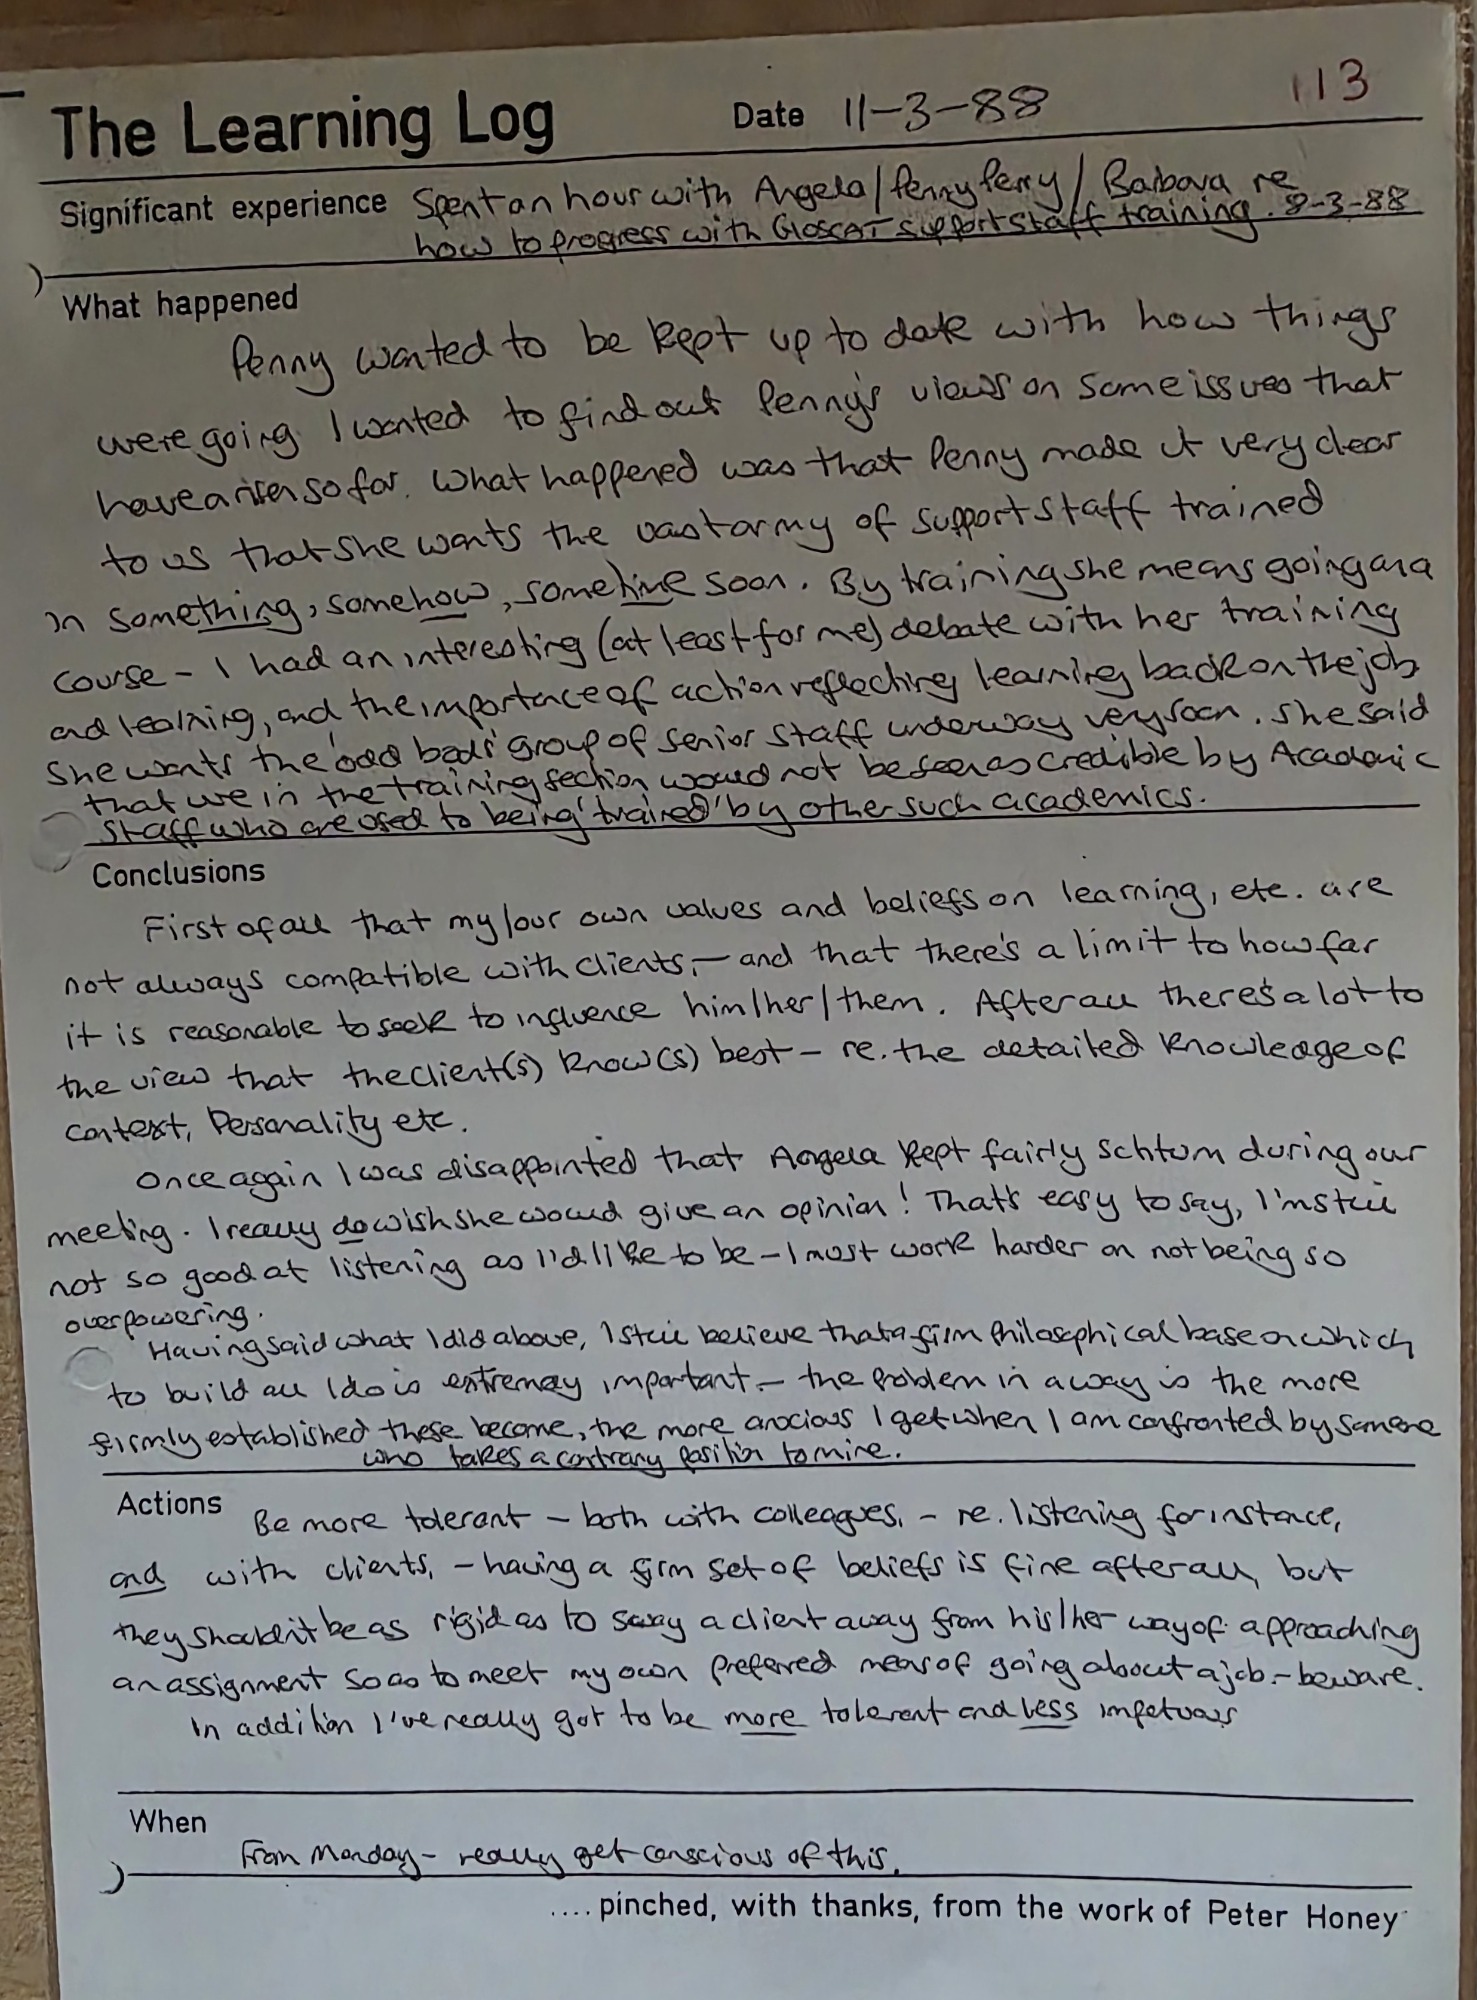 113
The Learning Log Date 11-3-88
Significant experience Spent an hour with Angela/Penny Perry/Barbara re
how to progress with GlosCAT support staff training. 8-3-88
What happened
Penny wanted to be kept up to date with how things
were going. I wanted to find out Penny's views on some issues that
have arisen so far. What happened was that Penny made it very clear
to us that she wants the vast army of support staff trained
in something, somehow, sometime soon. By training she means going on a
course - I had an interesting (at least for me) debate with her training
and learning, and the importance of action reflecting learning back on the job
She wants the 'odd bods' group of senior staff underway very soon. She said
that we in the training section would not be seen as credible by Academic
staff who are used to being 'trained' by other such academics.
Conclusions
First of all that my/our own values and beliefs on learning, etc. are
not always compatible with clients, - and that there's a limit to how far
it is reasonable to seek to influence him/her/them. After all there's a lot to
the view that the client(s) know(s) best - re. the detailed knowledge of
context, Personality etc.
Once again I was disappointed that Angela kept fairly schtum during our
meeting. I really do wish she would give an opinion! That's easy to say, I'm still
not so good at listening as I'd like to be - I must work harder on not being so
overpowering.
Having said what I did above, I still believe that a firm philosophical base on which
to build all I do is extremely important - the problem in a way is the more
firmly established these become, the more anxious I get when I am confronted by someone
who takes a contrary position to mine.
Actions Be more tolerant - both with colleagues, - re. listening for instance,
and with clients, - having a firm set of beliefs is fine after all, but
they shouldn't be as rigid as to sway a client away from his/her way of approaching
an assignment so as to meet my own preferred means of going about a job - beware.
In addition I've really got to be more tolerant and less impetuous
When
From Monday - really get conscious of this.
.... pinched, with thanks, from the work of Peter Honey